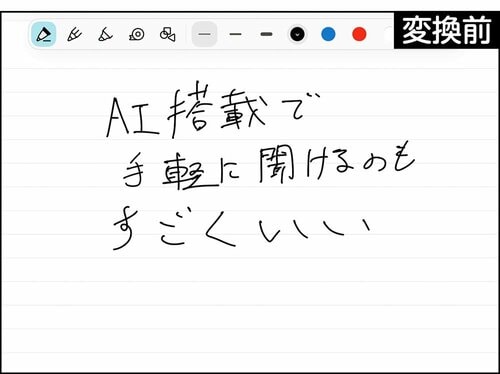 変換前
AI搭載で
手軽に聞けるのも
すごくいい